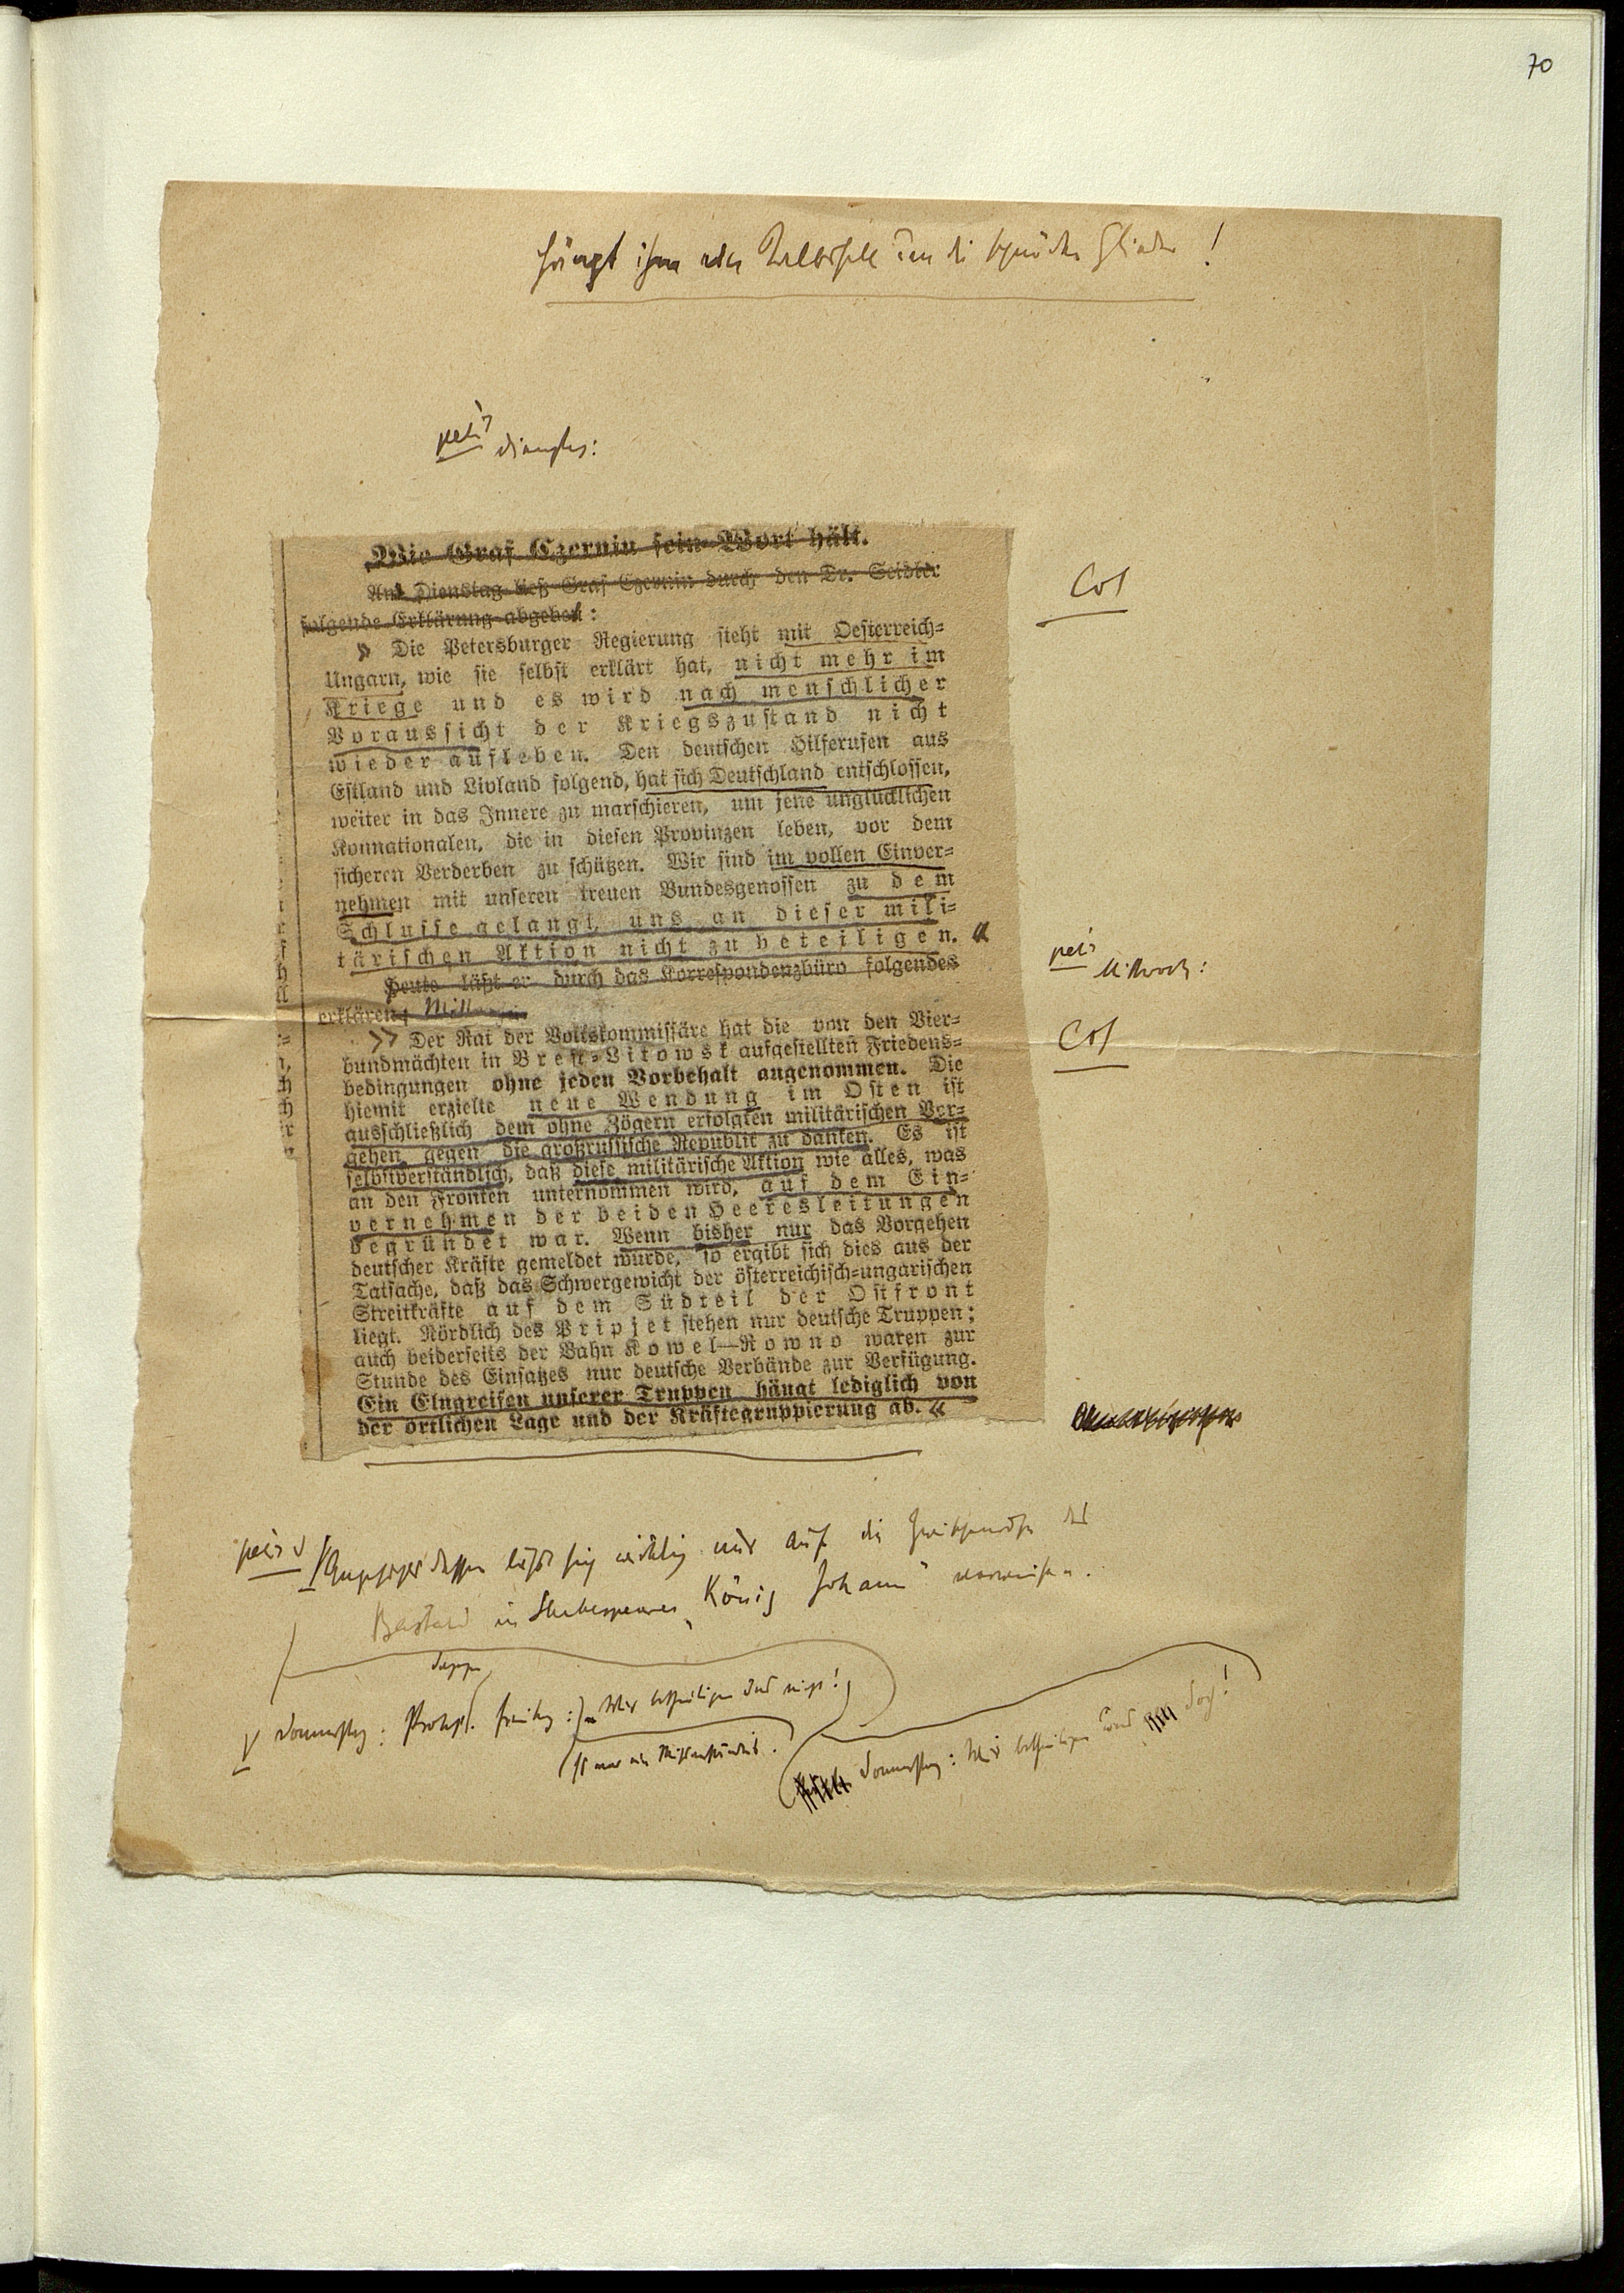 70
hängt ihm ein Kalbsfell um die schnöden Glieder!
petit Dienstag:
Wie Graf Czernin sein Wort hält.
Am Dienstag ließ Graf Czernin durch den Dr. Seidler
folgende Erklärung abgeben:
Cor
» Die Petersburger Regierung steht mit Oesterreich-
Ungarn, wie sie selbst erklärt hat, nicht mehr im
Kriege und es wird nach menschlicher
Voraussicht der Kriegszustand nicht
wieder aufleben. Den deutschen Hilferufen aus
Estland und Livland folgend, hat sich Deutschland entschlossen,
weiter in das Innere zu marschieren, um jene unglücklichen
Konnationalen, die in diesen Provinzen leben, vor dem
sicheren Verderben zu schützen. Wir sind im vollen Einver-
nehmen mit unseren treuen Bundesgenossen zu dem
Schlusse gelangt, uns an dieser mili-
tärischen Aktion nicht zu beteiligen. «
petit Mittwoch:
Heute läßt er durch das Korrespondenzbüro folgendes
erklären:
Cor
» Der Rat der Volkskommissäre hat die von den Vier-
bundmächten in Brest-Litowsk aufgestellten Friedens-
bedingungen ohne jeden Vorbehalt angenommen. Die
hiemit erzielte neue Wendung im Osten ist
ausschließlich dem ohne Zögern erfolgten militärischen Vor-
gehen gegen die großrussische Republik zu danken. Es ist
selbstverständlich, daß diese militärische Aktion wie alles, was
an den Fronten unternommen wird, auf dem Ein-
vernehmen der beiden Heeresleitungen
begründet war. Wenn bisher nur das Vorgehen
deutscher Kräfte gemeldet wurde, so ergibt sich dies aus der
Tatsache, daß das Schwergewicht der österreichisch-ungarischen
Streitkräfte auf dem Südteil der Ostfront
liegt. Nördlich des Pripjet stehen nur deutsche Truppen;
auch beiderseits der Bahn Kowel—Rowno waren zur
Stunde des Einsatzes nur deutsche Verbände zur Verfügung.
Ein Eingreifen unserer Truppen hängt lediglich von
der örtlichen Lage und der Kräftegruppierung ab. «
Angesichts dessen läßt sich wirklich nur auf die des
Bastard in Shakespeares „König Johann" verweisen.
Donnerstag: Wir beteiligen uns doch!
Freitag: Wir beteiligen uns nicht!